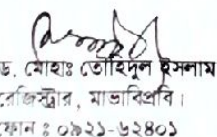 ড. মোহাঃ তৌহিদুল ইসলাম
রেজিস্ট্রার, মাভাবিপ্রবি।
ফোন ঃ ০৯২১-৬২৪০১